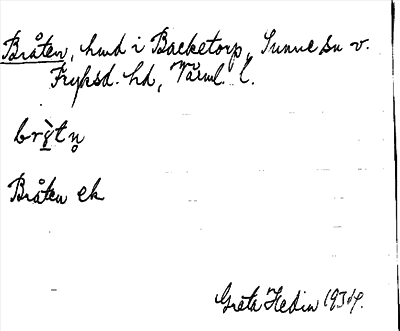 Bråten, hmd i Backetorp, Sunne sn v.
Fryksd. hd, Värml. l.
Bråten ek
Greta Hedin